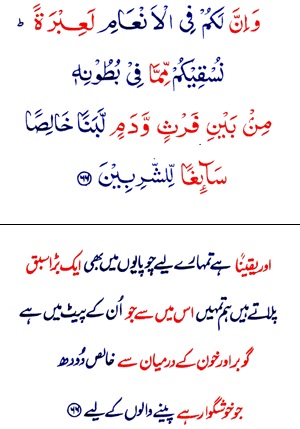 وَاِنَّ لَكُمْ فِى الْاَنْعَامِ لَعِبْرَةً ؕ
نُسْقِيْكُمْ مِّمَّا فِىْ بُطُوْنِهٖ
مِنْۢ بَيْنِ فَرْثٍ وَّدَمٍ لَّبَنًا خَالِصًا
سَآىِٕغًا لِّلشّٰرِبِيْنَ ﴿۶۶﴾
اور یقیناً ہے تمہارے لیے چوپایوں میں بھی ایک بڑا سبق
پلاتے ہیں ہم تمہیں اس میں سے جو اُن کے پیٹ میں ہے
گوبر اور خون کے درمیان سے خالص دُودھ
جو خوشگوار ہے پینے والوں کے لیے ﴿۶۶﴾